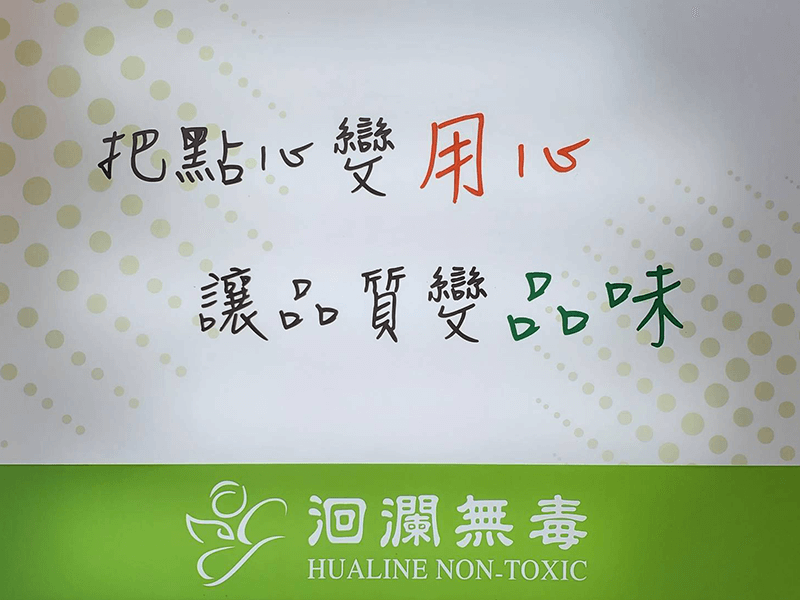 把點心變用心
讓品質變品味
洄瀾無毒
HUALINE NON-TOXIC